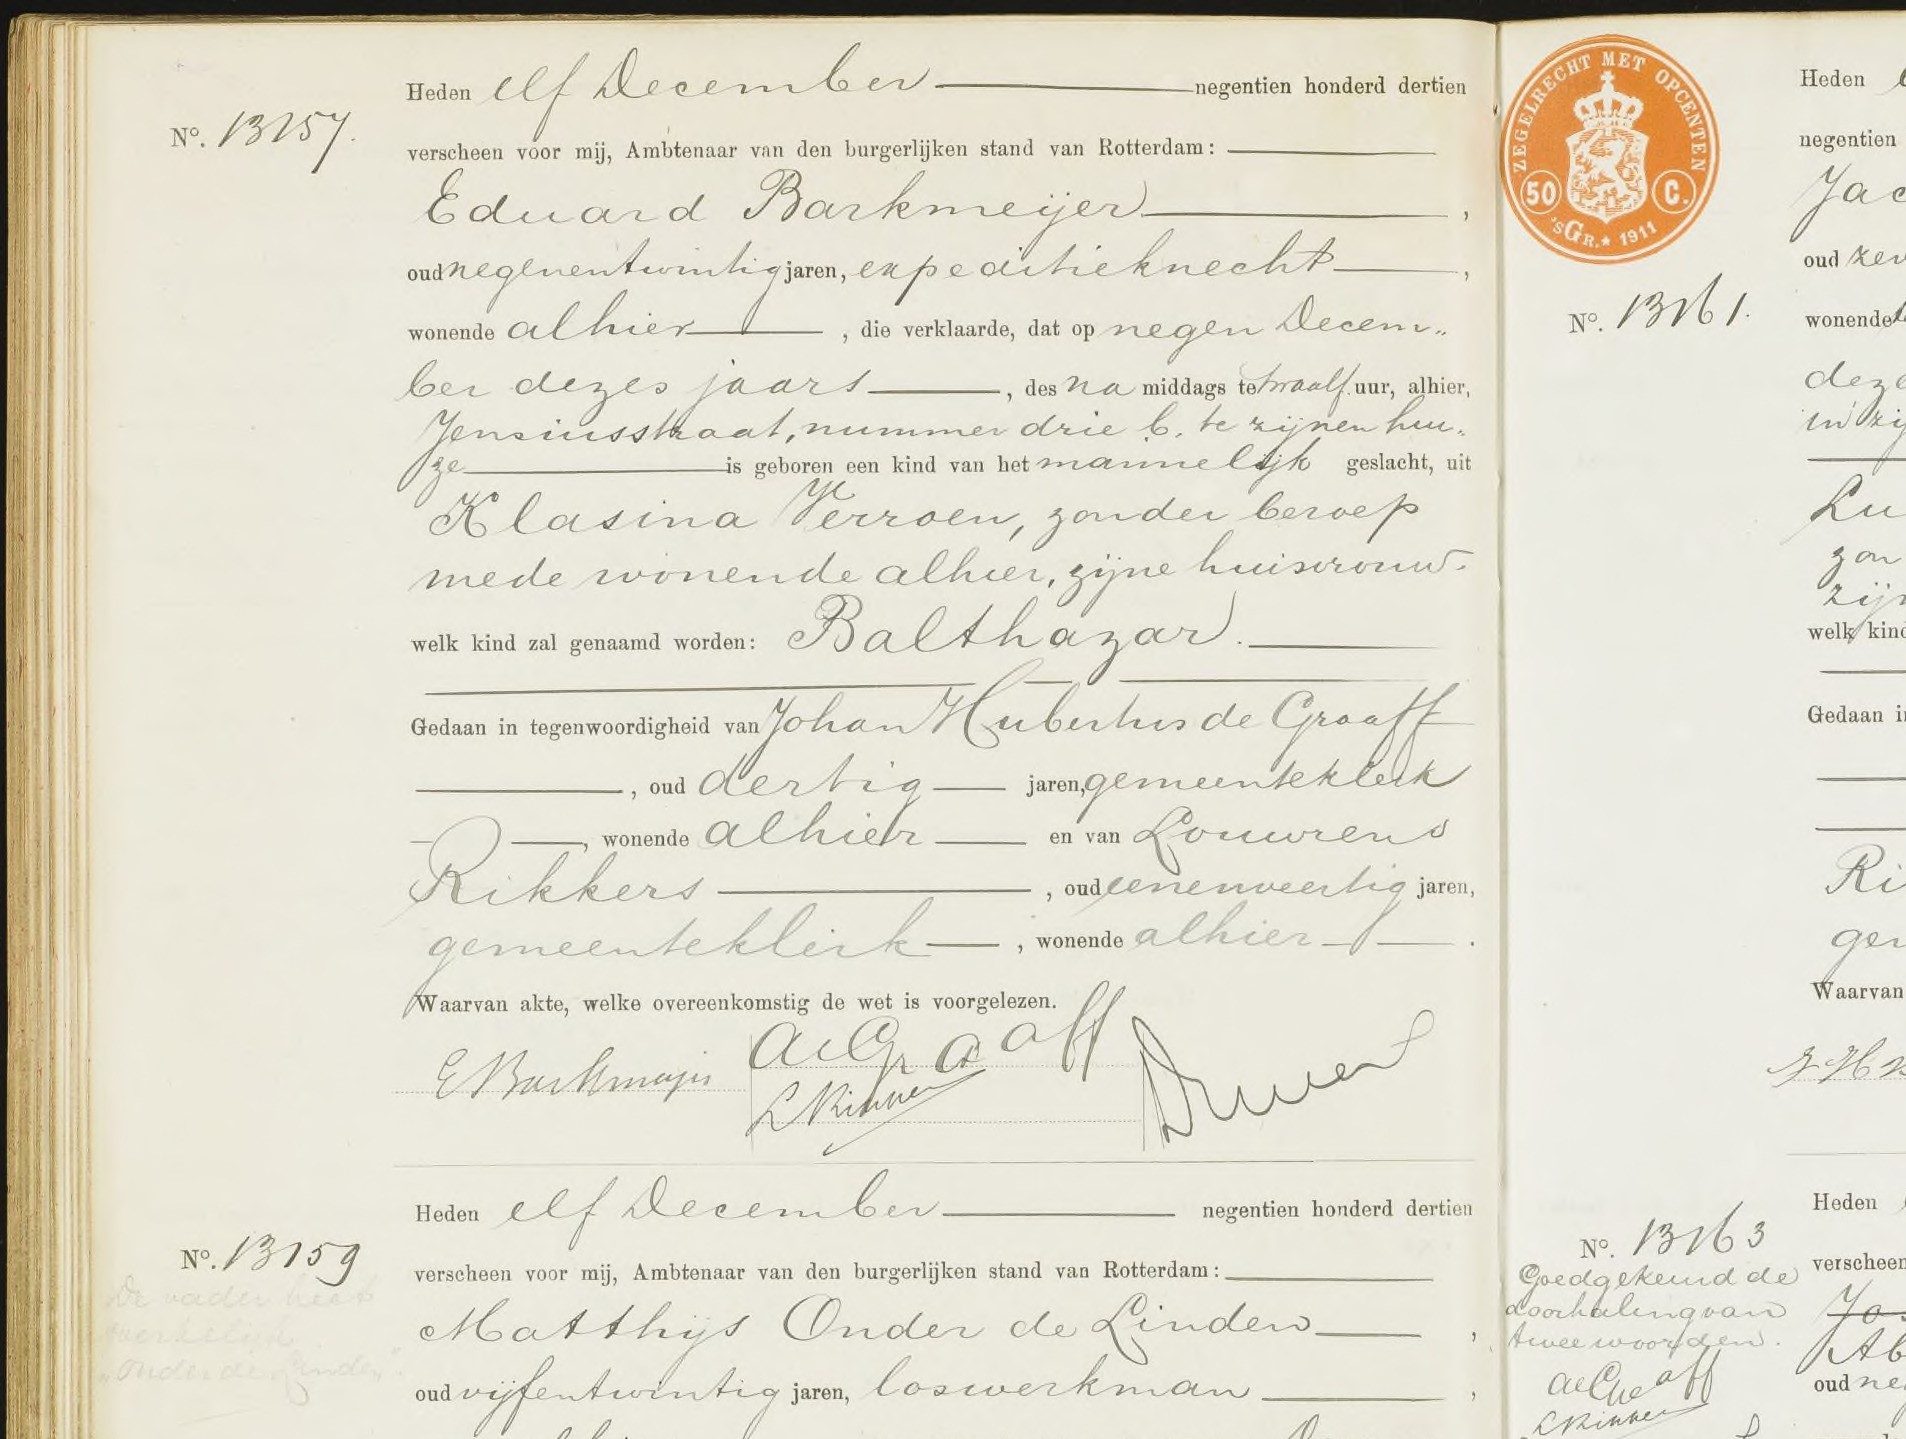 Heden elf December negentien honderd dertien
No. 13157.
verscheen voor mij, Ambtenaar van den burgerlijken stand van Rotterdam:
Eduard Barkmeijer,
oud negenentwintig jaren, expeditieknecht,
wonende alhier, die verklaarde, dat op negen Decem„
ber dezes jaars, des na middags te twaalf uur, alhier,
Jensiusstraat, nummer drie b. te zijnen hui„
ze is geboren een kind van het mannelijk geslacht, uit
Klasina Verroen, zonder beroep
mede wonende alhier, zijne huisvrouw.
welk kind zal genaamd worden: Balthazar.
Gedaan in tegenwoordigheid van Johan Hubertus de Graaff
, oud dertig jaren, gemeenteklerk
, wonende alhier en van Louwrens
Rikkers, oud eenenveertig jaren,
gemeenteklerk, wonende alhier.
Waarvan akte, welke overeenkomstig de wet is voorgelezen.
E Barkmeijer
de Graaff
L Rikkers
Heden elf December negentien honderd dertien
No. 13159
verscheen voor mij, Ambtenaar van den burgerlijken stand van Rotterdam:
De vader heet
werkelijk
„Onder de Linden".
Matthijs Onder de Linden,
oud vijfentwintig jaren, loswerkman,
ZEGELRECHT MET OPCENTEN
50 C.
'sGR.* 1911
Heden
negentien
Jac
oud zev
No. 13161.
wonende
deze
in zij
Lu
zon
zijn
welk kind
Gedaan i
Ri
gem
Waarvan
Heden
No. 13163
verscheen
Goedgekeurd de
doorhaling van
twee woorden.
Jo
Ab
de Graaff
oud ne
L Rikkers